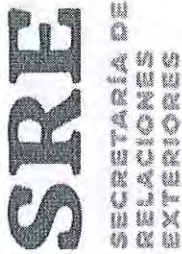 SRE
SECRETARÍA DE
RELACIONES
EXTERIORES